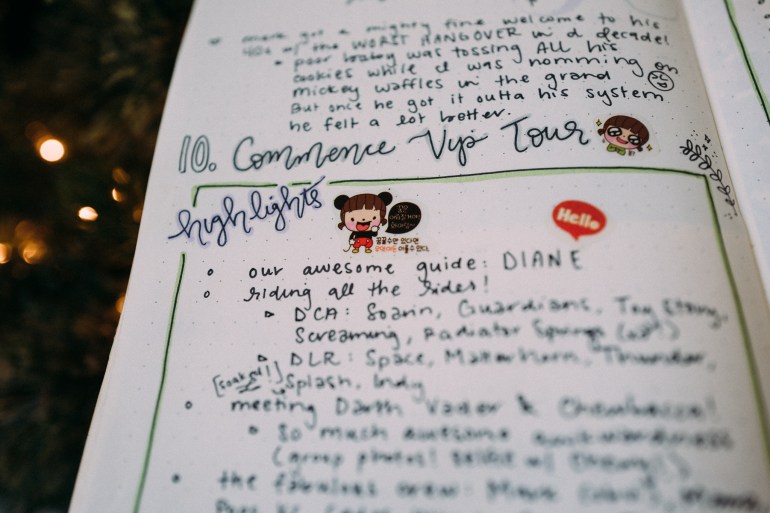 got a mighty fine welcome to his
40s w/ the WORST HANGOVER in a decade!
poor baby was tossing ALL his
cookies while I was nomming on
mickey waffles in the grand
But once he got it outta his system
he felt a lot better.
10. Commence Vip Tour
highlights
Hello
꿈꿀수만 있다면
이룰수 있다.
our awesome guide: DIANE
riding all the rides!
DCA: Soarin, Guardians, Toy Story,
Screaming, Radiator Springs
DLR: Space, Matterhorn, Thunder,
[soaked!] Splash, Indy
meeting Darth Vader & Chewbacca!
so much awesome awkwardness
(group photos! selfie w/
the fabulous crew: